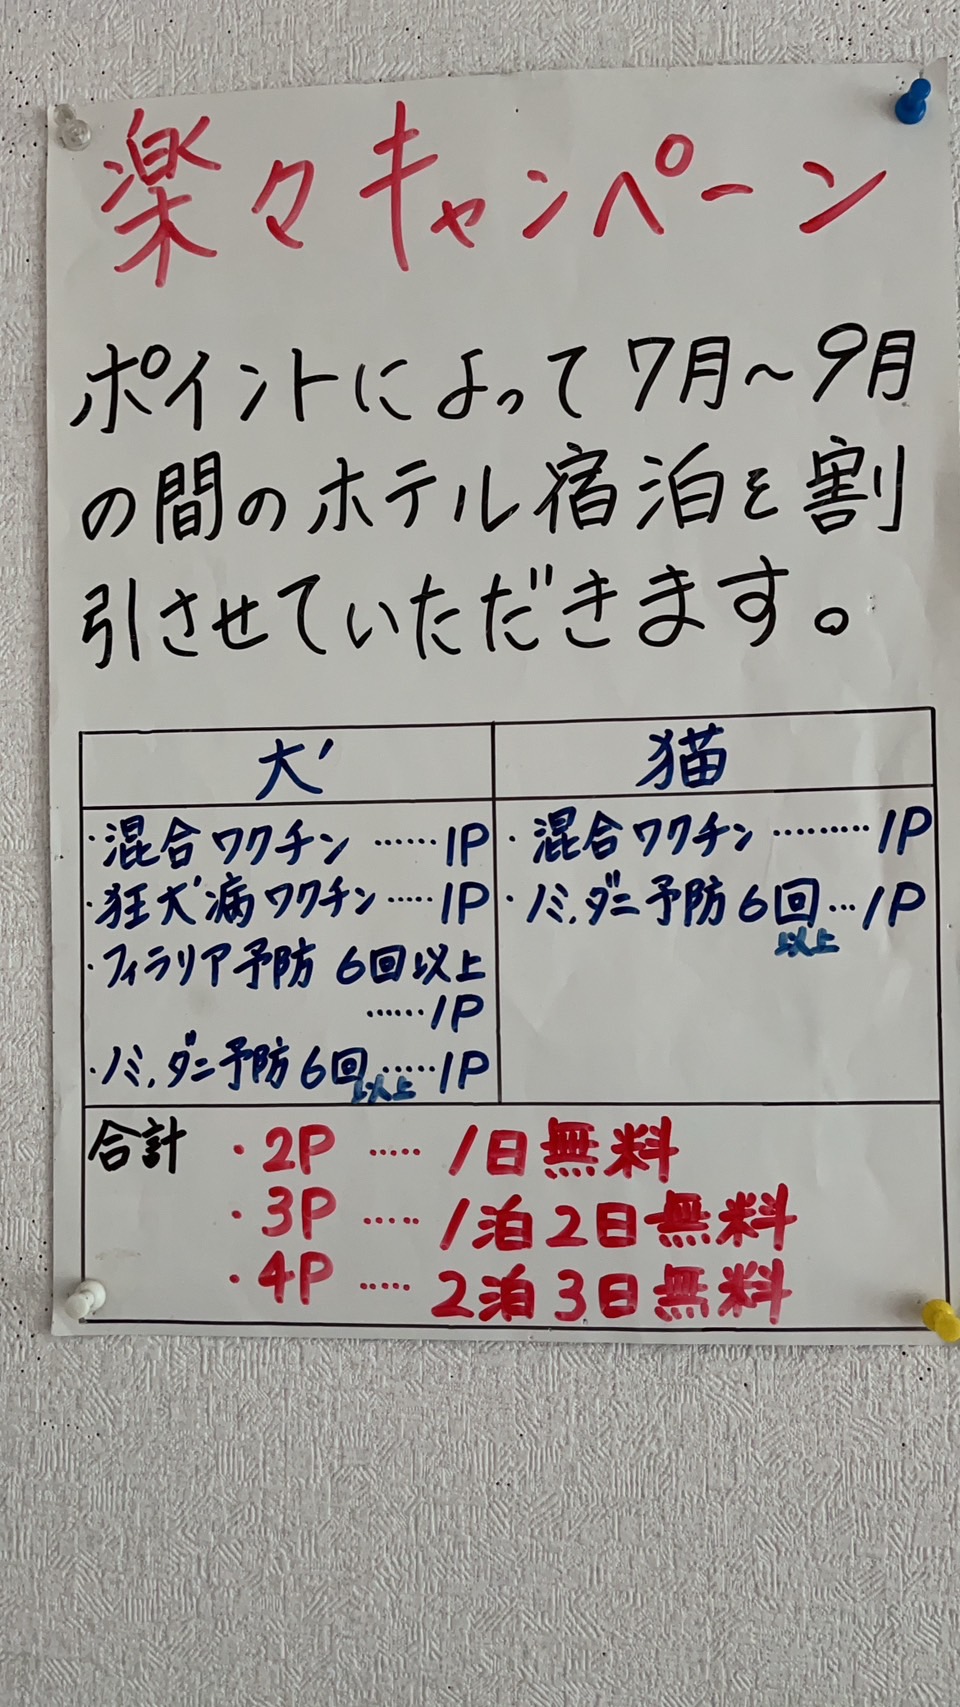 楽々キャンペーン
ポイントによって7月～9月
の間のホテル宿泊を割
引させていただきます。
犬
・混合ワクチン……1P
・狂犬病ワクチン……1P
・フィラリア予防 6回以上
……1P
・ノミ、ダニ予防6回以上……1P
猫
・混合ワクチン………1P
・ノミ、ダニ予防6回以上…1P
合計
・2P ……1日無料
・3P ……1泊2日無料
・4P ……2泊3日無料